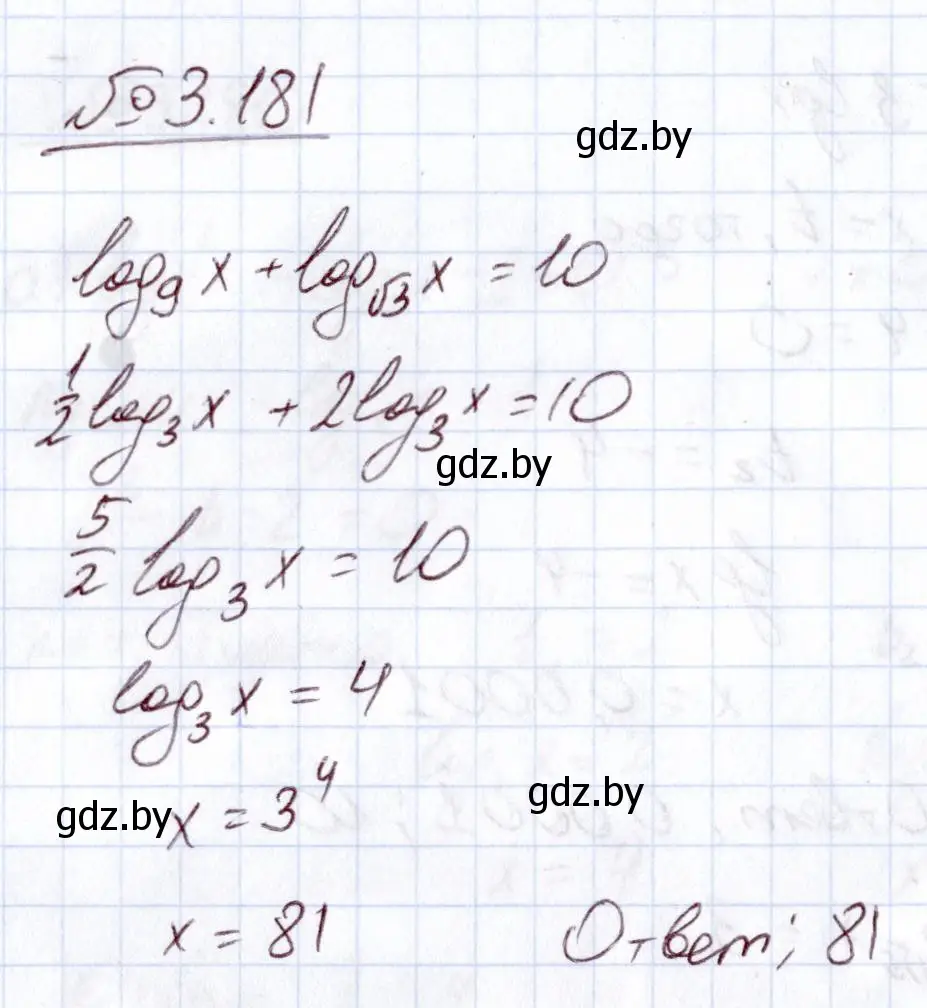 № 3.181
gdz.by
log₉ x + log_√3 x = 10
½ log₃ x + 2 log₃ x = 10
gdz.by
5/2 log₃ x = 10
log₃ x = 4
gdz.by x = 3⁴ gdz.by
x = 81 Ответ; 81